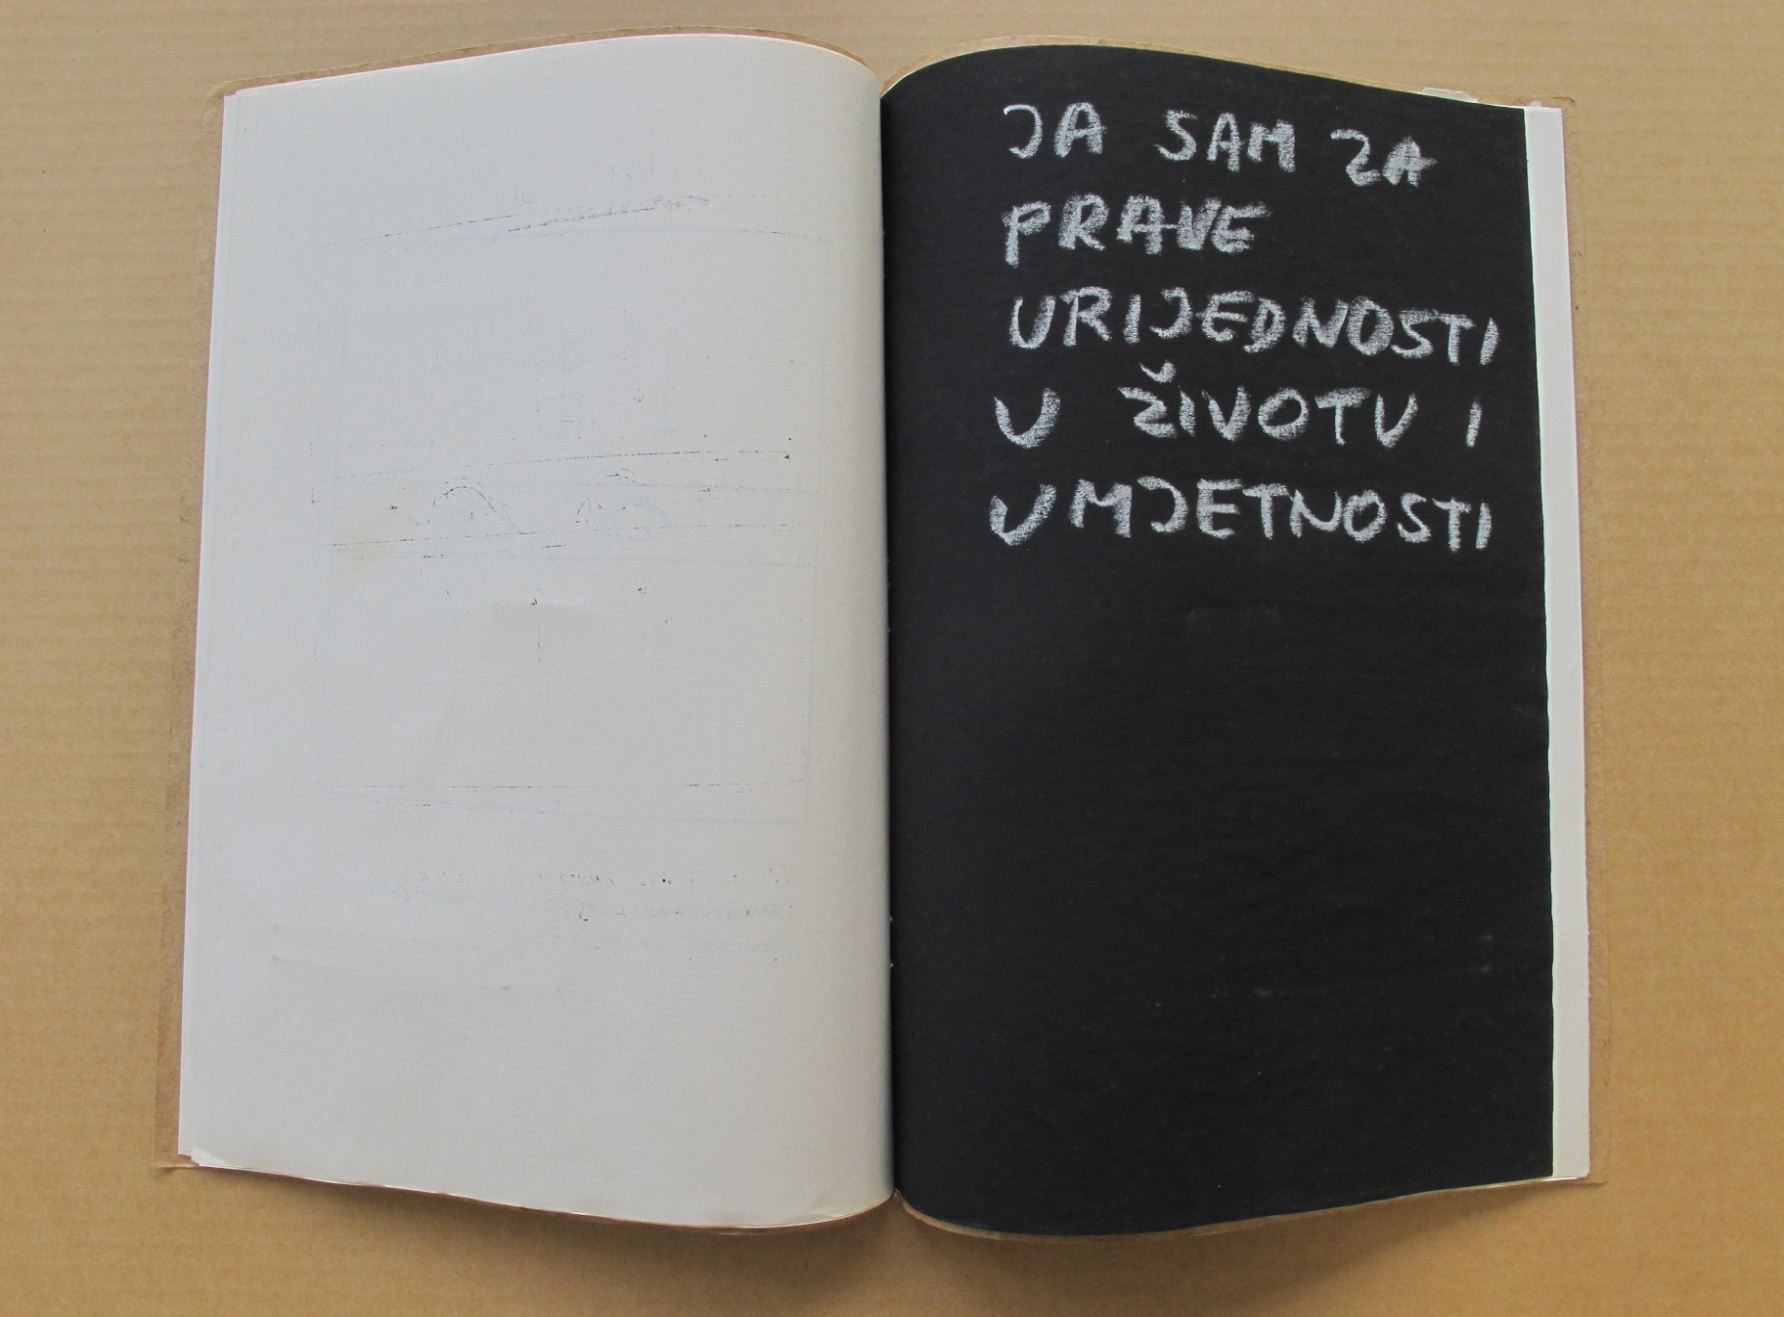 JA SAM ZA
PRAVE
VRIJEDNOSTI
U ŽIVOTU I
UMJETNOSTI